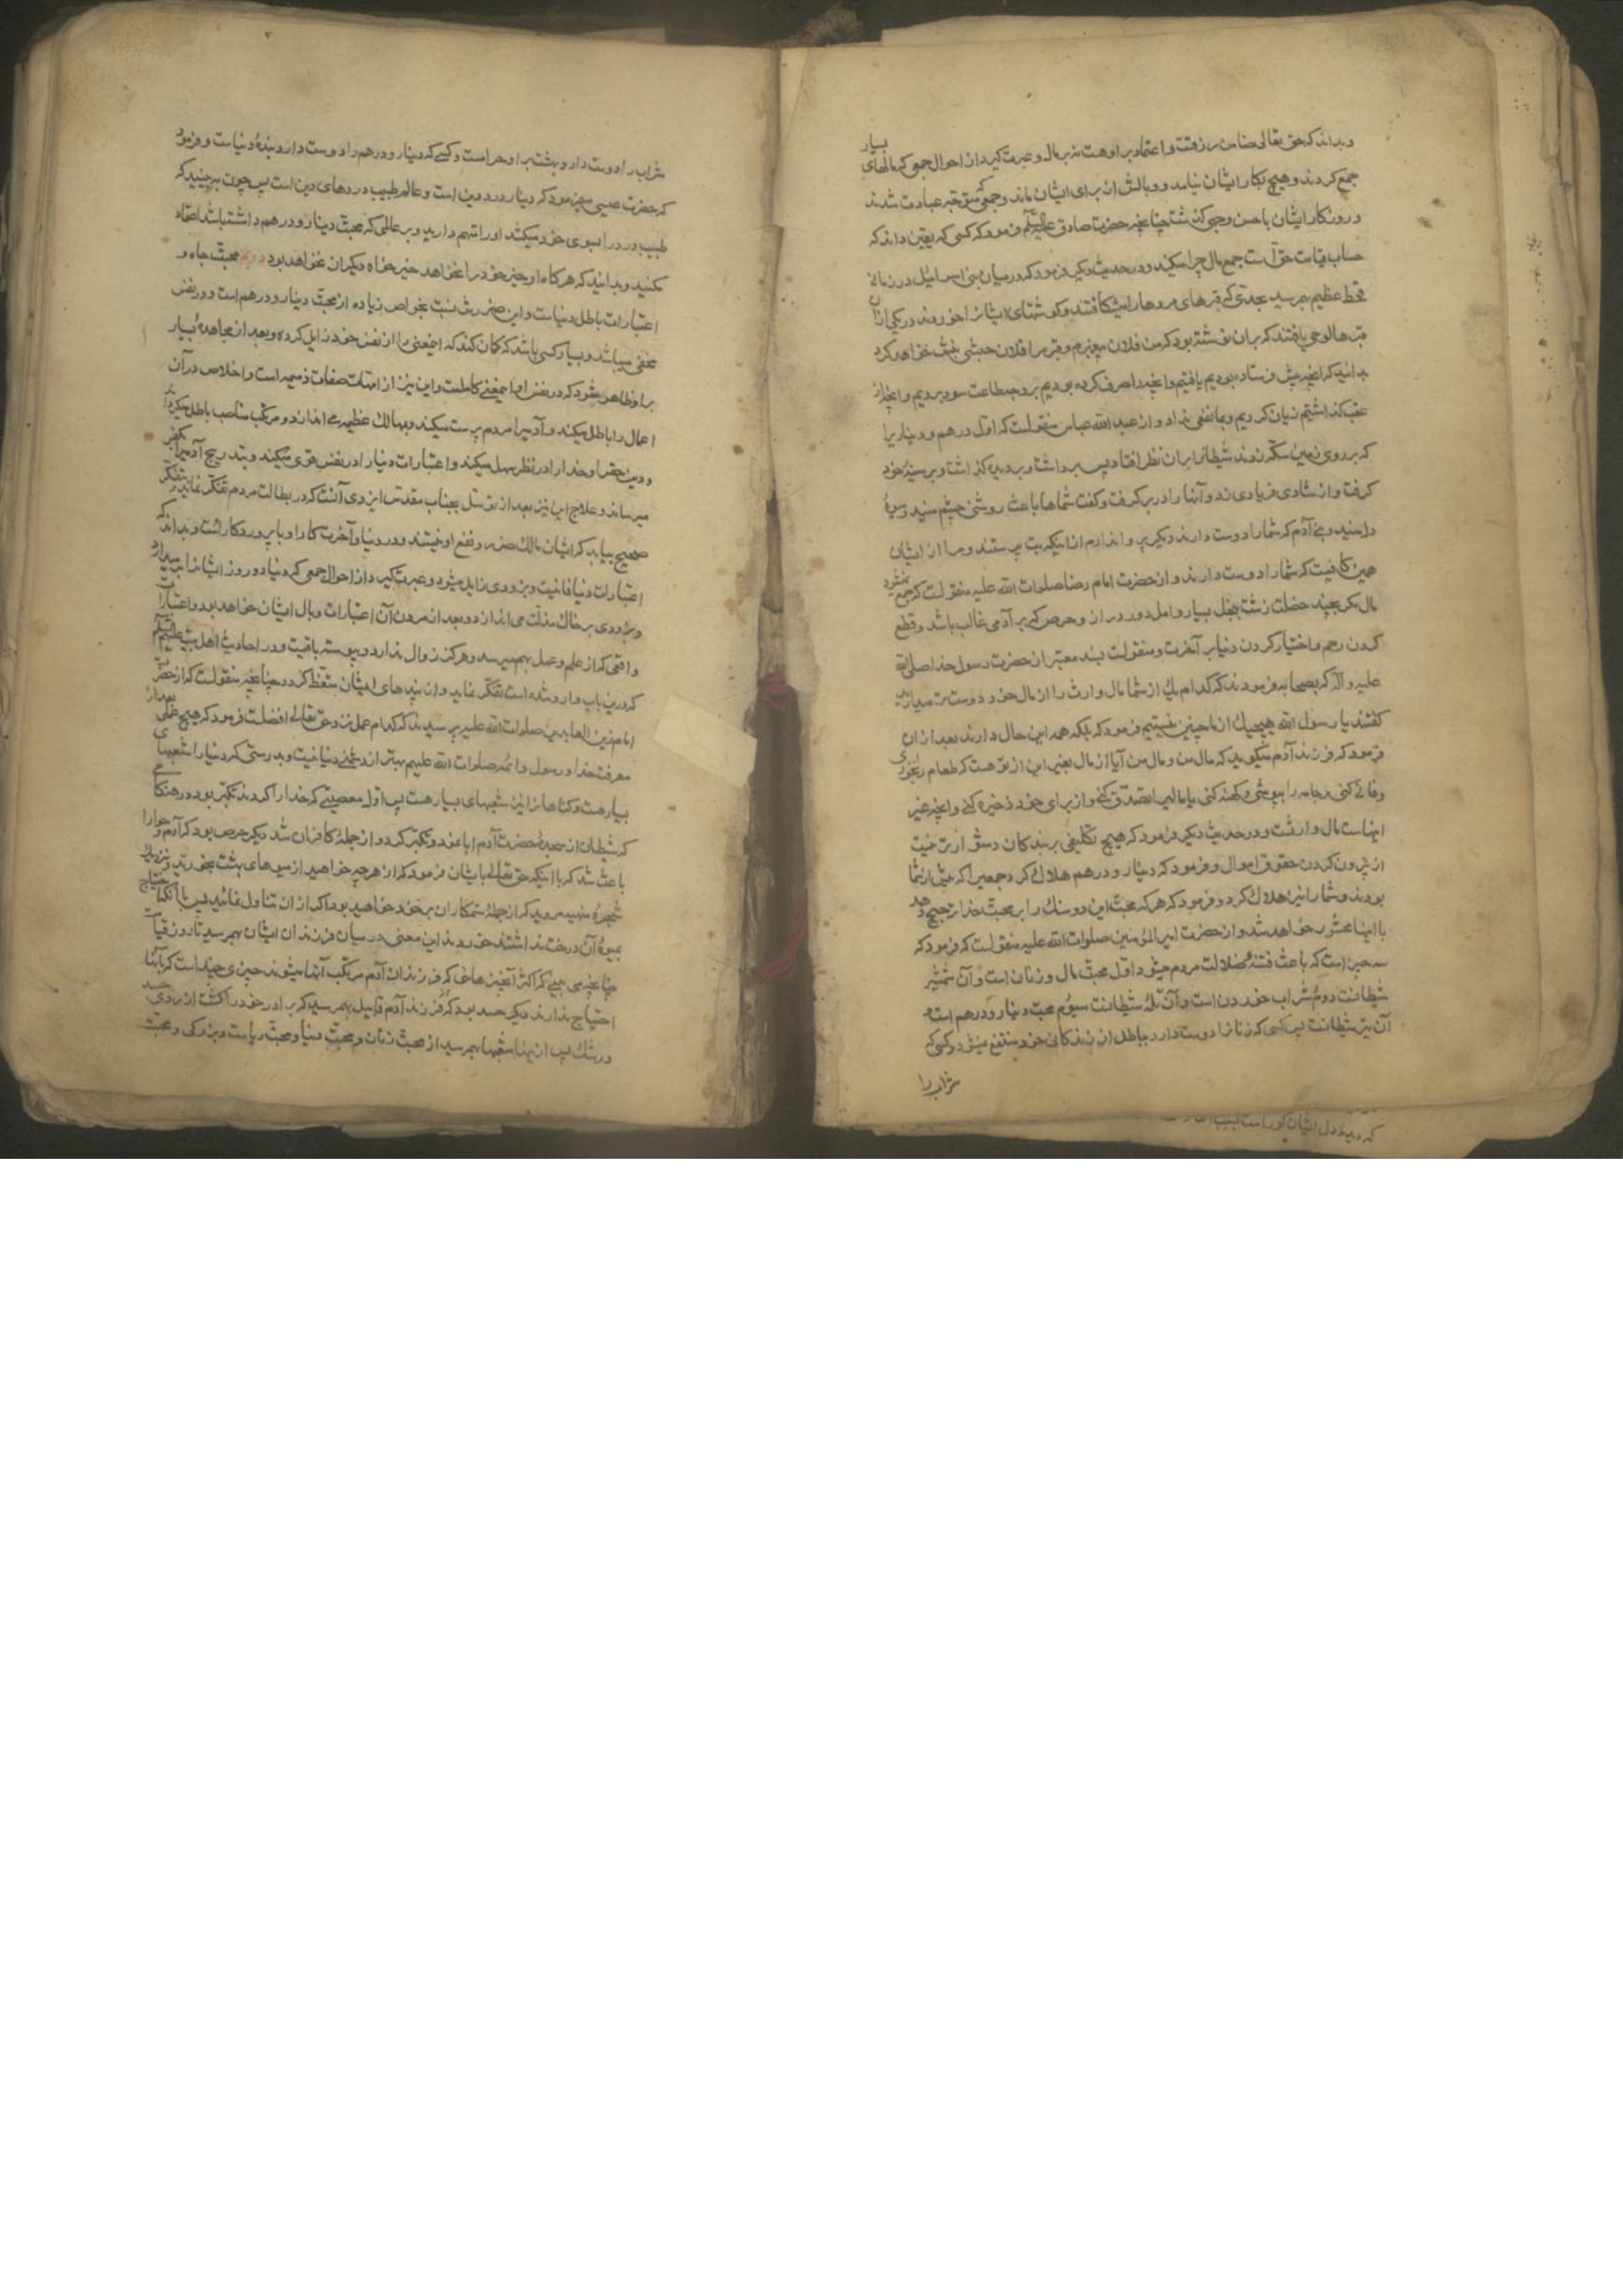 و بداند که حق تعالی ضامن رزقست و اعتماد بر او هست نه بر مال و عبرت گیرد از احوال جمعی که مالهای بسیار
جمع کردند و هیچ بکار ایشان نیامد و وبالش از برای ایشان ماند و جمعی که متوجه عبادت شدند
و روزگار ایشان باحسن وجهی گذشت چنانچه حضرت صادق علیه السلام فرمود که کسی که یقین داند که
حساب قیامت حق است جمع مال چرا میکند و در حدیث دیگر فرمود که در میان بنی اسرائیل در زمانی
قحط عظیم بهم رسید بحدی که قبرهای مردها را میشکافتند و گوشتهای ایشانرا میخوردند در یکی ازان
قبرها لوحی یافتند که بران نوشته بود که من فلان پیغمبرم و قبر مرا فلان حبشی نبش خواهد کرد
بدانید که آنچه پیش فرستاده بودیم یافتیم و آنچه را صرف کرده بودیم بر وجه طاعت سود بردیم و آنچه از
عقب گذاشتیم زیان کردیم و بما نفعی نداد و از عبد الله عباس منقولست که اول درهم و دیناریرا
که بر روی زمین سکه زدند شیطانرا بران نظر افتاد پس برداشت و بر دیده گذاشت و بر سینهٔ خود
گرفت و از شادی فریادی زد و آنها را در بر گرفت و گفت شماها باعث روشنی چشم منید و میوهٔ
دل منید و بنی آدم که شما را دوست دارند دیگر پروا ندارم از اینکه بت پرستند و مرا از ایشان
همین کافیست که شما را دوست دارند و از حضرت امام رضا صلوات الله علیه منقولست که جمع نمیشود
مال مگر به پنج خصلت زشت بخل بسیار و امل دور دراز و حرص که بر آدمی غالب باشد و قطع
کردن رحم و اختیار کردن دنیا بر آخرت و منقولست بسند معتبر از حضرت رسول خدا صلی الله
علیه و آله که بصحابه فرمودند که کدام یک از شما مال وارث را از مال خود دوست تر میدارید
گفتند یا رسول الله هیچیک از ما چنین نیستیم فرمود که بلکه همه این حال دارند بعد از ان
فرمود که فرزند آدم میگوید که مال من و مال من آیا از مال بغیر این از تو هست که طعام را بخوری
و فانی کنی و جامه را بپوشی و کهنه کنی یا مالیرا تصدق کنی و از برای خود ذخیره کنی و آنچه غیر
اینهاست مال وارثست و در حدیث دیگر فرمود که هیچ تکلیفی بر بندگان دشوارتر نیست
از بیرون کردن حقوق اموال و فرمود که دینار و درهم هلاک کرد جمعیرا که پیش از شما
بودند و شما را نیز هلاک کرد و فرمود که هرکه محبت این دو سنگ را بر محبت خدا ترجیح دهد
با اینها محشور خواهد شد و از حضرت امیر المؤمنین صلوات الله علیه منقولست که فرمود که
سه چیز است که باعث فتنه و ضلالت مردم میشود اول محبت مال و زنان است و آن شمشیر
شیطانست دوم شراب خوردن است و آن تلهٔ شیطانست سیوم محبت دینار و درهم است و
آن تیر شیطانست پس کسی که زنانرا دوست دارد بباطل از زندگانی خود منتفع نمیشود و کسی که
شراب را
شراب را دوست دارد بهشت بر او حرام است و کسی که دینار و درهم را دوست دارد بندهٔ دنیاست و فرمود
که حضرت عیسی میفرمود که دینار درد دین است و عالم طبیب دردهای دین است پس چون ببینید که
طبیب درد را بسوی خود میکشد او را متهم دارید و بر عالمی که محبت دینار و درهم داشته باشد اعتماد
مکنید و بدانید که هرگاه او خیر خود را نخواهد خیرخواه دیگران نخواهد بود دویم محبت جاه و
اعتبارات باطل دنیاست و این ضررش نسبت بخواص زیاده از محبت دینار و درهم است و در نفس
مخفی میباشد و بسیار کسی باشد که گمان کند که اینمعنی را از نفس خود زایل کرده و بعد از مجاهدهٔ بسیار
بر او ظاهر میشود که در نفس او اینمعنی کاملست و این نیز از امهات صفات ذمیمه است و اخلاص در آن
اعمال را باطل میکند و آدمیرا مردم پرست میکند و بمهالک عظیمه می اندازد و مرتکب مناصب باطله میگرداند
و دین حق را و خدا را در نظر سهل میکند و اعتبارات دنیا را در نفس قوی میکند و بتدریج آدمیرا بکفر
میرساند و علاج این نیز بعد از توسل بجناب مقدس ایزدی آنست که در بطالت مردم تفکر نماید و بتفکر
صحیح بیابد که ایشان مالک ضرر و نفع او نیستند و در دنیا و آخرت کار او با پروردگار است و بداند که
اعتبارات دنیا فانیست و بزودی زایل میشود و عبرت گیرد از احوال جمعی که دنیا دو روز ایشانرا بر میدارد
و بزودی بر خاک مذلت می اندازد و بعد از مردن آن اعتبارات وبال ایشان خواهد بود و اعتبارات
واقعی که از علم و عمل بهم میرسد و هرگز زوال ندارد و پیوسته باقیست و در احادیث اهل بیت علیهم السلام
که درین باب وارد شده است تفکر نماید و از پندهای ایشان متعظ گردد چنانچه منقولست که از حضرت
امام زین العابدین صلوات الله علیه پرسیدند که کدام عمل نزد حق تعالی افضلست فرمود که هیچ عملی بعد از
معرفت خدا و رسول و ائمه صلوات الله علیهم بهتر از دشمنی دنیا نیست و بدرستی که دنیا را شعبهای
بسیار هست و گناهانرا نیز شعبهای بسیار هست پس اول معصیتی که خدا را کردند تکبر بود در هنگامی
که شیطان از سجدهٔ حضرت آدم ابا نمود و تکبر کرد و از جملهٔ کافران شد دیگر حرص بود که آدم و حوا را
باعث شد که با اینکه حق تعالی بایشان فرمود که از هرچه خواهید از میوهای بهشت بخورید و نزدیک
شجرهٔ منهیه مروید که از جملهٔ ستمکاران بر خود خواهید بود اگر از ان تناول نمائید پس با آنکه احتیاج
بمیوهٔ آن درخت نداشتند خوردند این معنی در میان فرزندان ایشان بهم رسید تا روز قیامت
چنانچه می بینی که اکثر آنچیزهائی که فرزندان آدم مرتکب آنها میشوند چیزی چند است که بآنها
احتیاج ندارند دیگر حسد بود که فرزند آدم قابیل بهم رسید که برادر خود را کشت از روی حسد
و رشک پس از اینها شعبها بهم رسید از محبت زنان و محبت دنیا و محبت ریاست و بزرگی و محبت